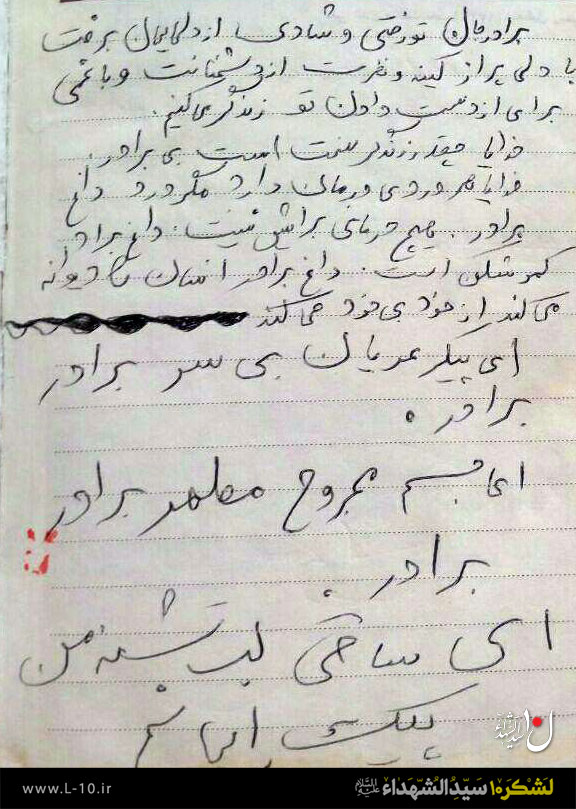 برادرمان تو رفتی و شادی از دلهایمان برفت
با دلی پر از کینه و نفرت از دشمنانت و با غمی
برای از دست دادن تو زندگی می‌کنیم.
خدایا چقدر زندگی سخت است بی برادر.
خدایا هر دردی درمان دارد مگر درد داغ
برادر. هیچ درمانی برایش نیست. داغ برادر
کمر شکن است. داغ برادر انسان را دیوانه
می کند از خود بی خود می کند
ای پیکر عریان بی سر برادر
برادر.
ای جسم مجروح مطهر برادر
برادر.
ای ساقی لب تشنه من
پیک
www.L-10.ir
لشکر۱۰ سیّدالشهداء علیه‌السلام